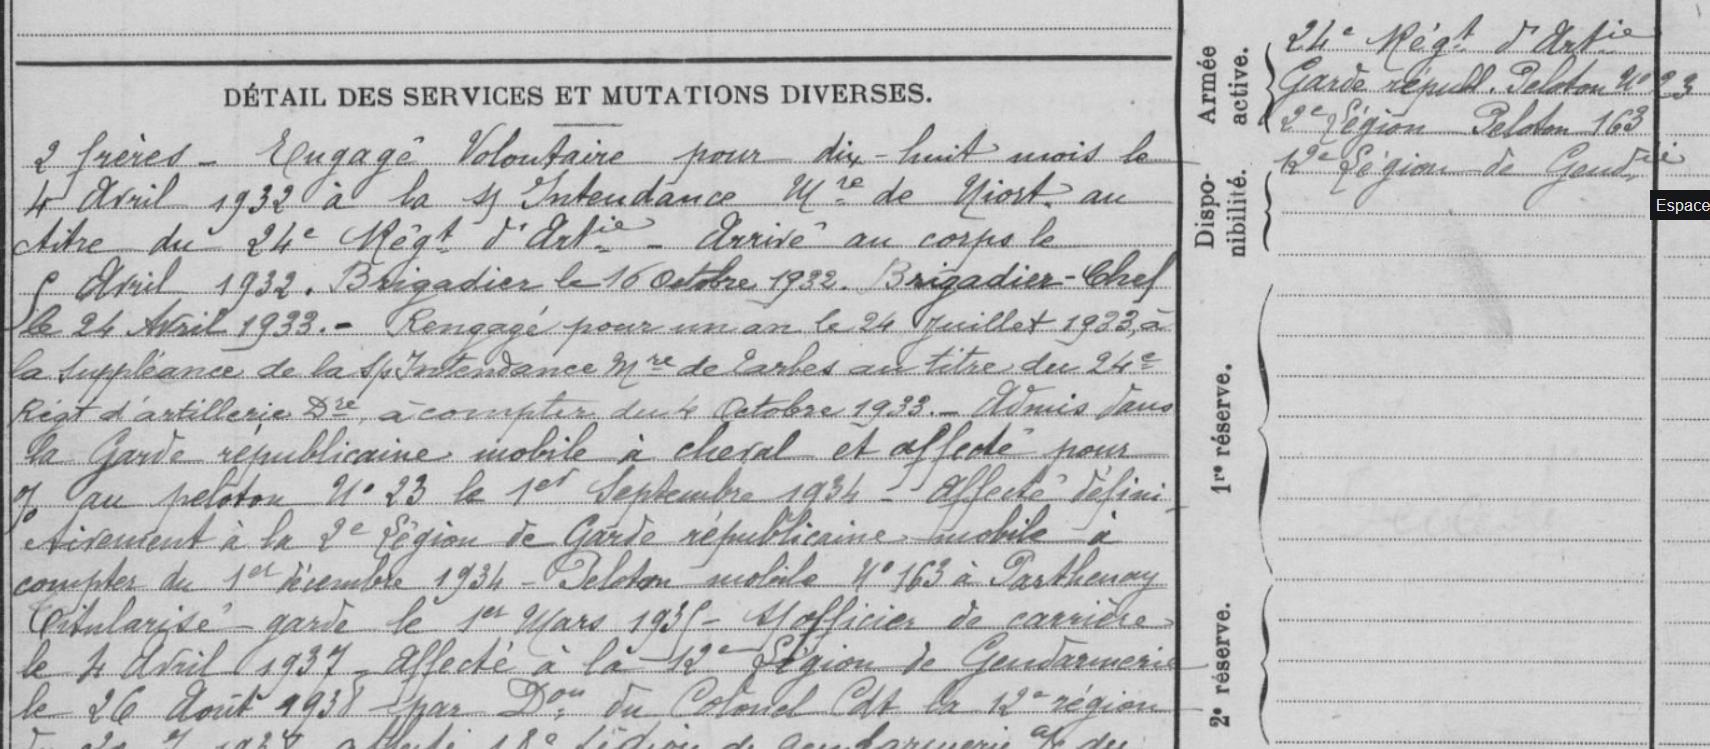 DÉTAIL DES SERVICES ET MUTATIONS DIVERSES.
2 frères - Engagé Volontaire pour dix-huit mois le
4 Avril 1932 à la s/ Intendance Mre de Niort au
titre du 24e Régt d'Artie - Arrivé au corps le
5 Avril 1932. Brigadier le 16 Octobre 1932. Brigadier-Chef
le 24 Avril 1933. - Rengagé pour un an le 24 Juillet 1933, à
la suppléance de la s/Intendance Mre de Tarbes au titre du 24e
Régt d'artillerie Dre, à compter du 4 Octobre 1933. - Admis dans
la Garde républicaine mobile à cheval et affecté pour
au peloton No 23 le 1er Septembre 1934 - Affecté défini
tivement à la 2e Légion de Garde républicaine mobile à
compter du 1er décembre 1934 - Peloton mobile No 163 à Parthenay
Titularisé garde le 1er Mars 1935 - s/officier de carrière
le 4 Avril 1937 - Affecté à la 12e Légion de Gendarmerie
le 26 Août 1938 par Don du Colonel Cdt la 12e région
Légion de gendarmerie
Armée active.
24e Régt d'Artie
Garde républ. Peloton No 23
2e Légion Peloton 163
12e Légion de Gendrie
Dispo-
nibilité.
Espace
1re réserve.
2e réserve.